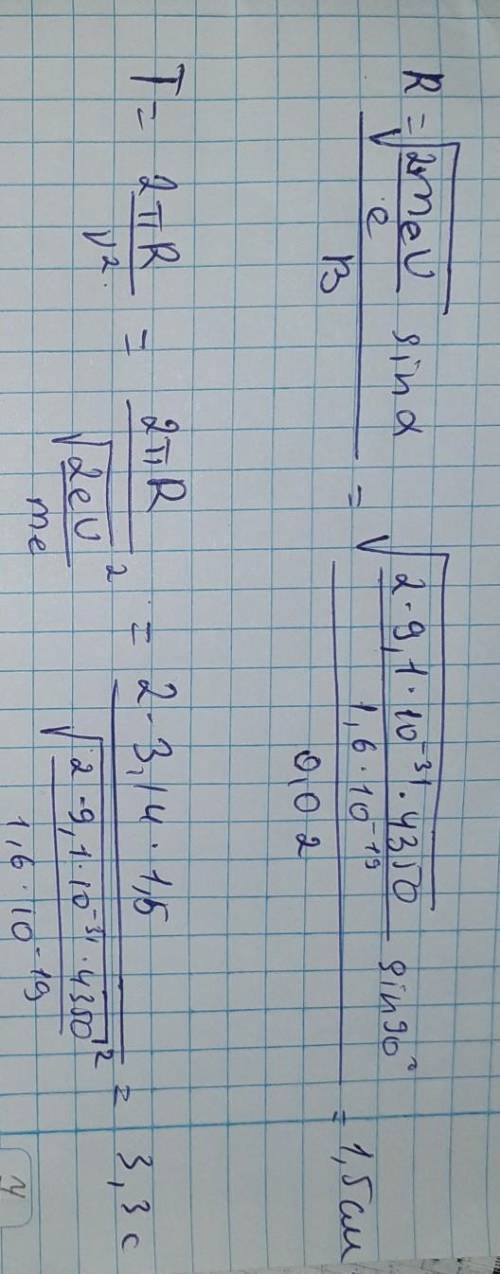 R = √(2 m_e U / e) sin α / B = √(2 · 9,1 · 10⁻³¹ · 4350 / 1,6 · 10⁻¹⁹) sin 90° / 0,02 = 1,5 см
T = 2πR / V² = 2πR / √(2eU / m_e)² = 2 · 3,14 · 1,5 / √(2 · 9,1 · 10⁻³¹ · 4350 / 1,6 · 10⁻¹⁹)² = 3,3 с